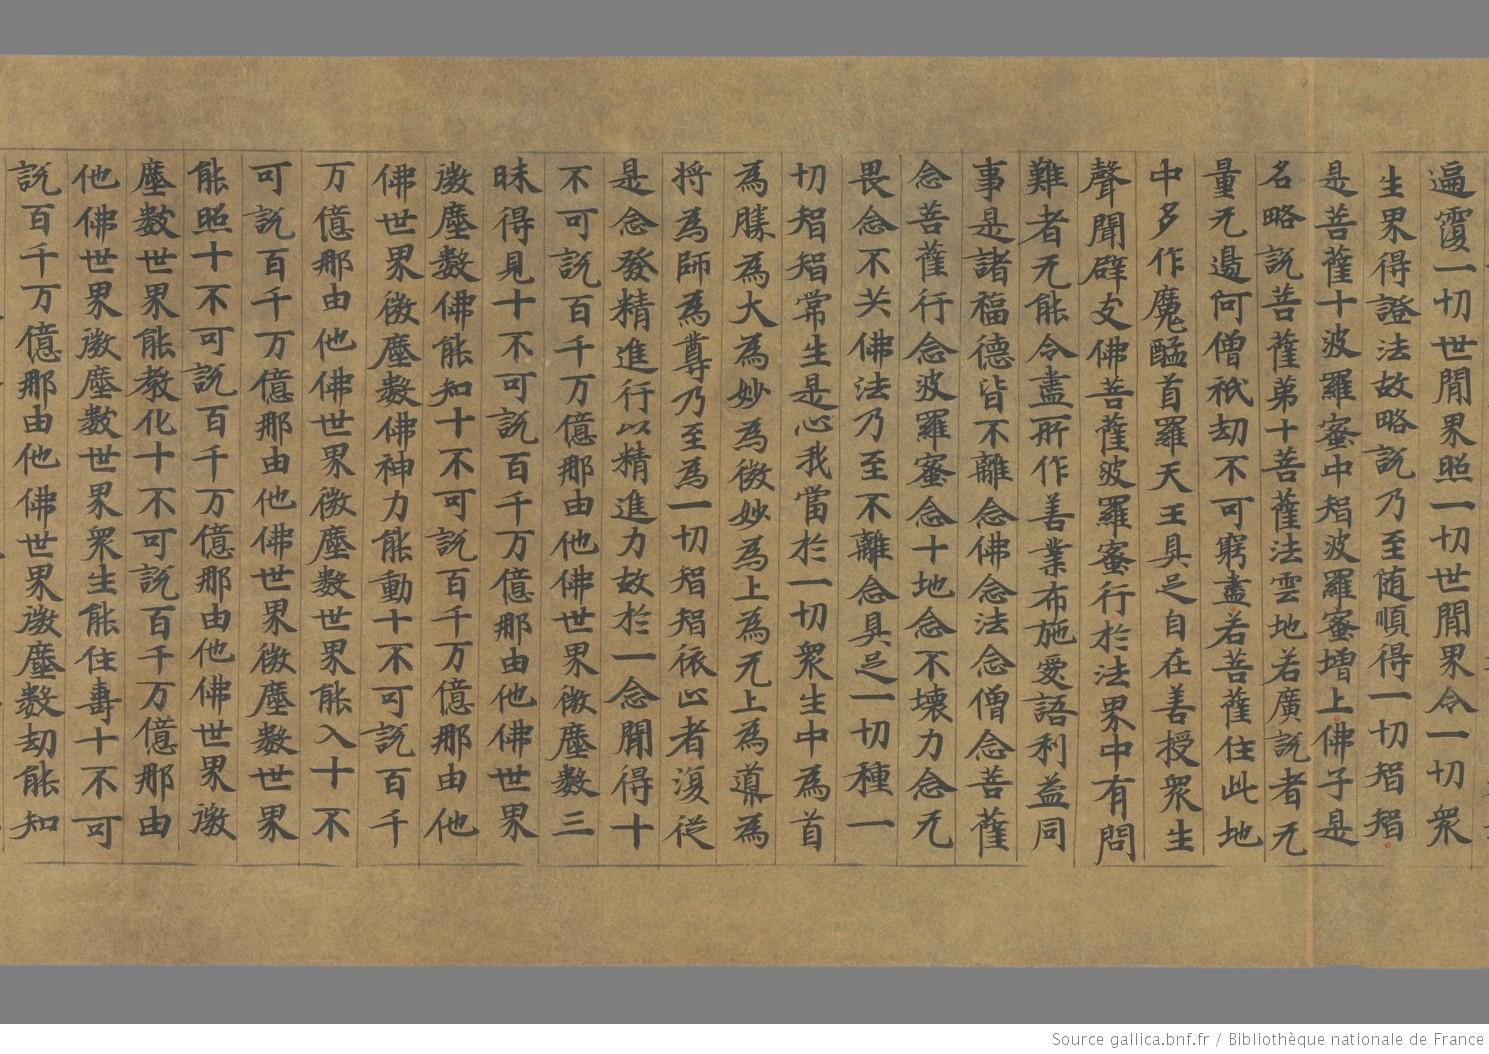 遍覆一切世間界照一切世間界令一切衆
生界得證法故略說乃至随順得一切智智
是菩薩十波羅蜜中智波羅蜜增上佛子是
名略說菩薩苐十菩薩法雲地若廣說者无
量无邊阿僧祇劫不可窮盡若菩薩住此地
中多作魔醯首羅天王具足自在善授衆生
聲聞辟支佛菩薩波羅蜜行於法界中有問
難者无能令盡所作善業布施愛語利益同
事是諸福德皆不離念佛念法念僧念菩薩
念菩薩行念波羅蜜念十地念不壞力念无
畏念不共佛法乃至不離念具足一切種一
切智智常生是心我當於一切衆生中為首
為勝為大為妙為微妙為上為无上為導為
将為師為尊乃至為一切智智依止者復從
是念發精進行以精進力故於一念間得十
不可說百千万億那由他佛世界微塵數三
昧得見十不可說百千万億那由他佛世界
微塵數佛能知十不可說百千万億那由他
佛世界微塵數佛神力能動十不可說百千
万億那由他佛世界微塵數世界能入十不
可說百千万億那由他佛世界微塵數世界
能照十不可說百千万億那由他佛世界微
塵數世界能教化十不可說百千万億那由
他佛世界微塵數世界衆生能住壽十不可
說百千万億那由他佛世界微塵數劫能知
Source gallica.bnf.fr / Bibliothèque nationale de France